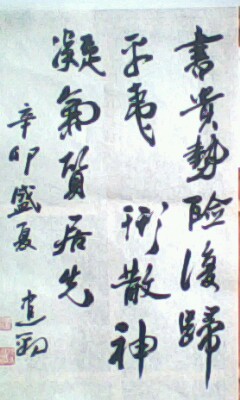 書貴勢險復歸
平夷形散神
凝氣質居先
辛卯盛夏